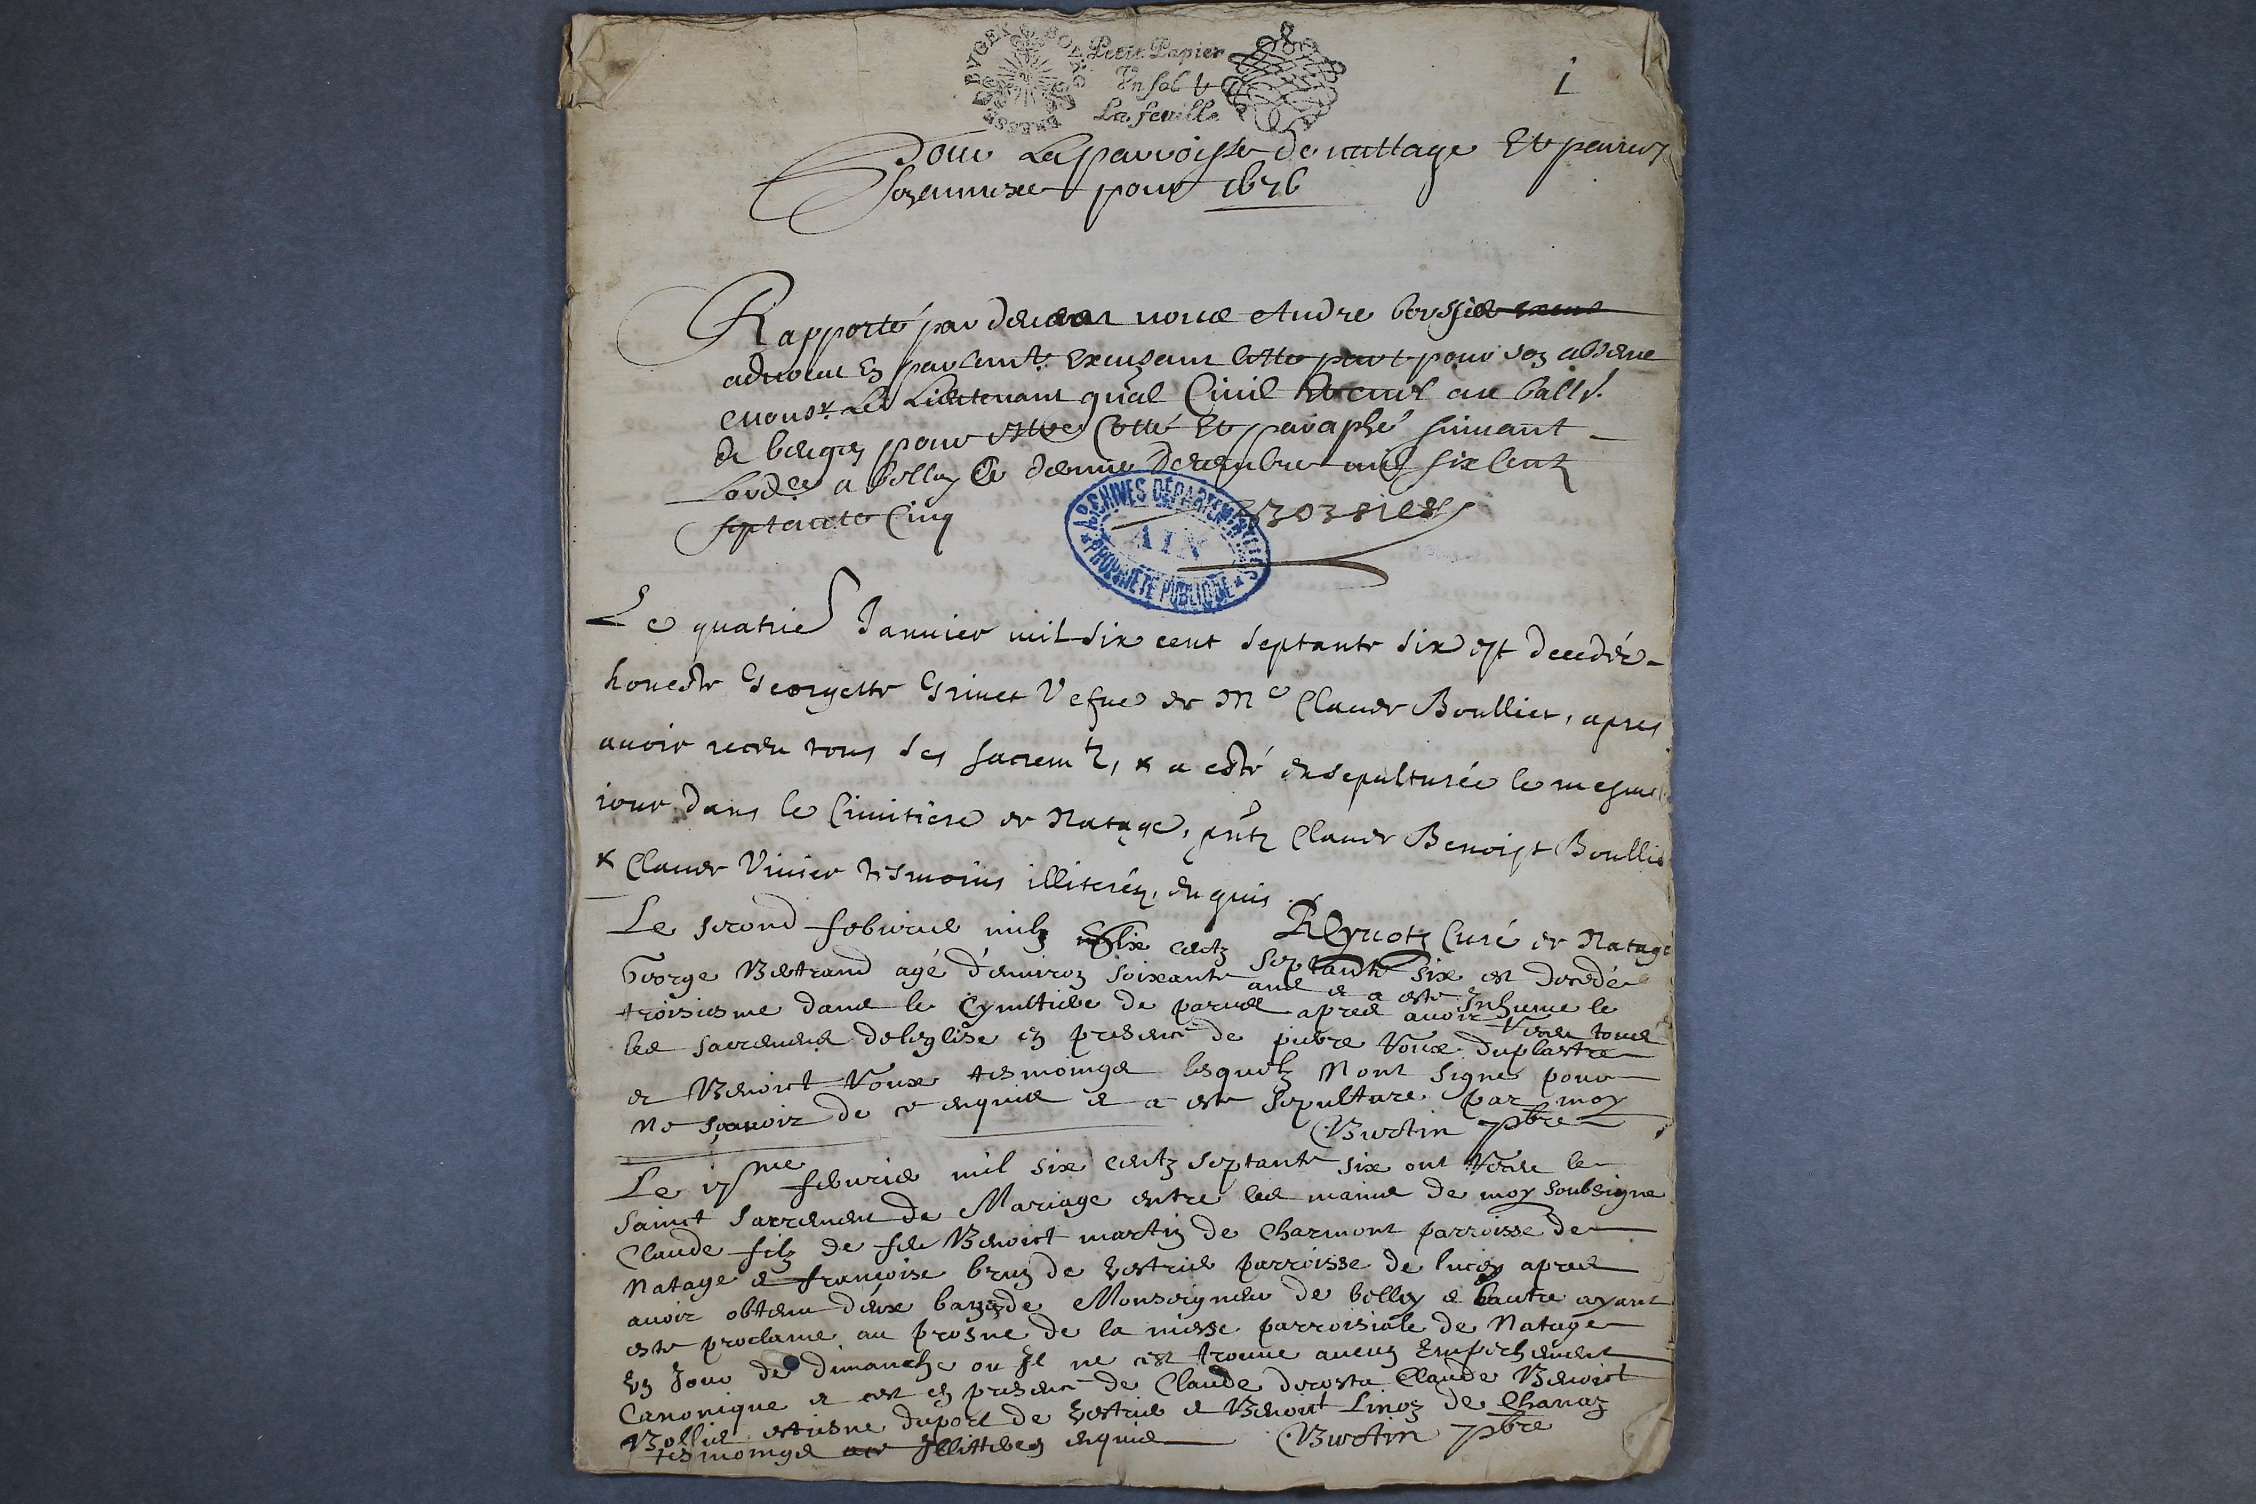 BRESSE BUGEY
Petit Papier
Un sol
La feuille
1
Pour La parroisse de nattage Et parves
son annexe pour 1676
Rapporté par devant nous Andre bossier
advocat En parlemt. Exerçant pour son absence
Monsr. Le Lieutenant gnal Civil au balle.
de beugey pour estre Cotté Et paraphé suivant
Lordce a belley Ce dernier Decembre mil six Centz
septante Cinq
Bossier
ARCHIVES DÉPARTEMENTALES
AIN
PROPRIÉTÉ PUBLIQUE
Le quatrie Januier mil six cent septante six est decedée
honeste Georgette Grinet Vefue de Me Claude Boullier, apres
auoir receu tous ses sacremtz, & a esté ensepulturée le mesme
iour dans le Cimitiere de Natage, pntz Claude Benoist Boullie
& Claude Vinier tesmoins illiterez, enquis
Reynotz Curé de Natage
Le second febvrier milz six centz septante six est decedé
George Bertrand agé d'environ soixante ans e a este Inhume le
troisiesme dans le Cymitiere de parves apres avoir receu tous
les sacremens de leglise en presence de pierre Roux duplastre
et Benoict Roux tesmoings lesquelz Nont signé pour
Ne sçauoir de ce enquis e a este sepulture par moy
Burtin pbre
Le 17me febvrier mil six centz septante six ont receu le
sainct sacrement de Mariage entre les mains de moy soubsigne
Claude filz de feu Benoict martin de Charmont parroisse de
Natage e françoise brun de vestrie parroisse de lucey apres
auoir obtenu deux bans de Monseigneur de belley e lautre ayant
este proclame au prosne de la messe parroisiale de Natage
un Jour de dimanche ou Il ne cest trouue aucun Empechement
Canonique e cest en presence de Claude decosta Claude Benoict
Bollie estiesne duport de vestrie e Benoict Linoz de Chanaz
tesmoings Illitterez enquis
Burtin pbre